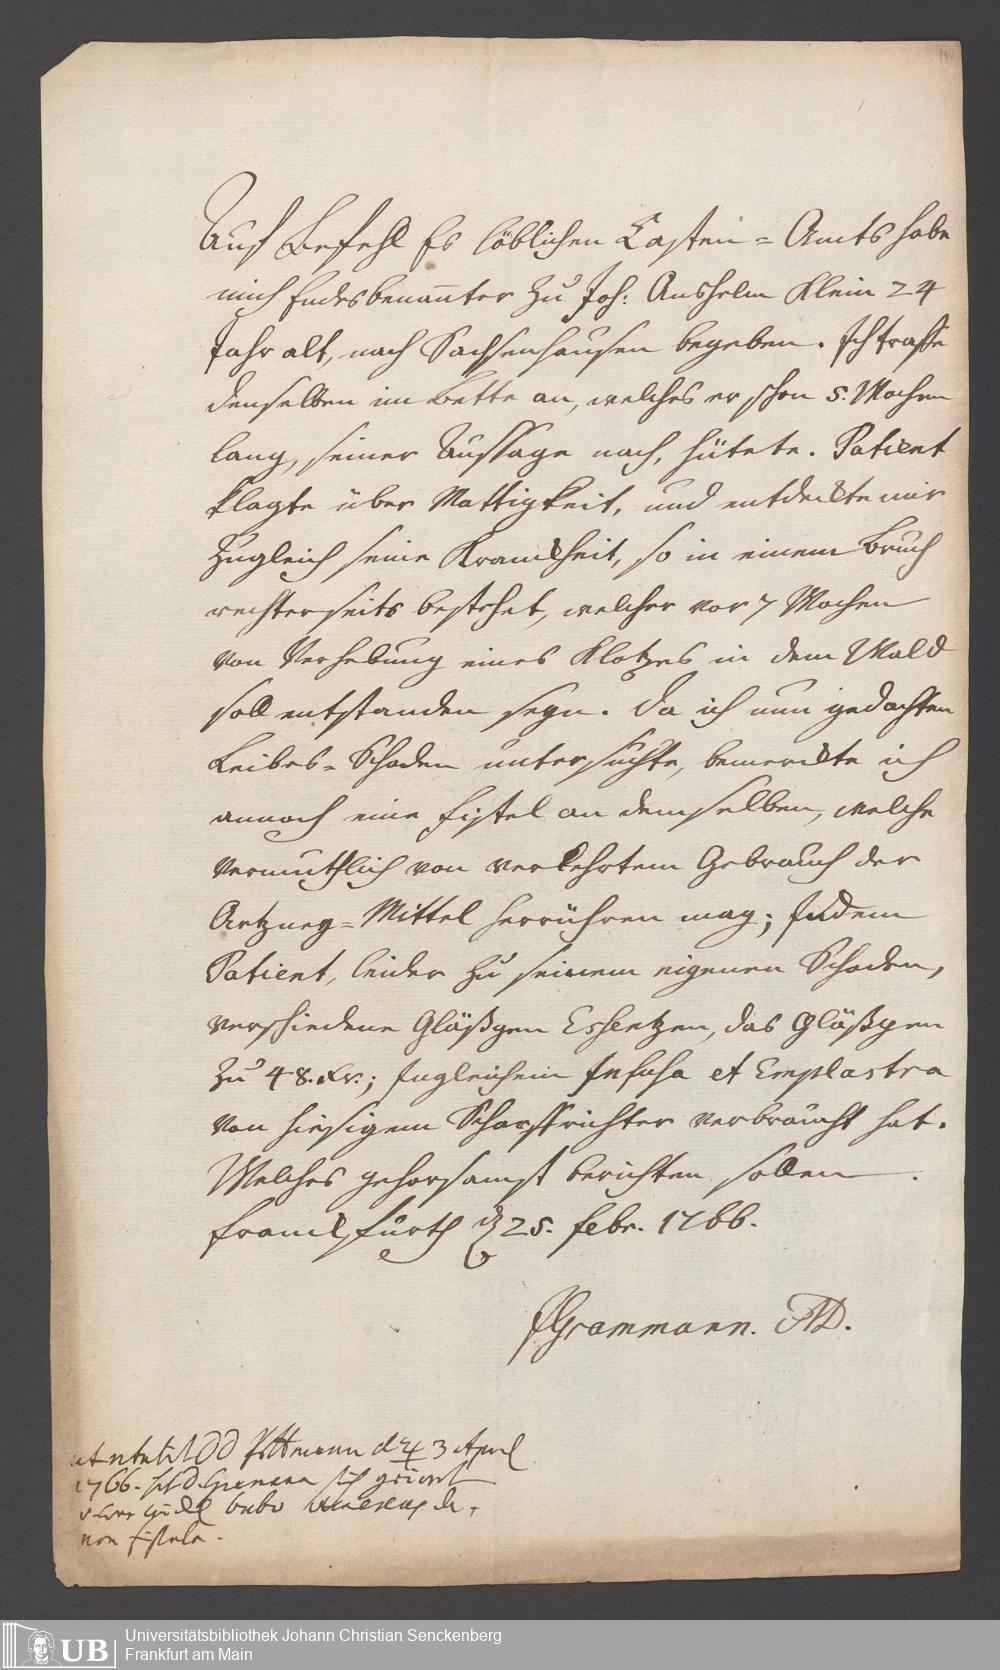 Auf Befehl Es löblichen Casten=Amts habe
mich Endesbenannter zu Joh: Anshelm Klein 24
Jahr alt, nach Sachsenhausen begeben. Ich traffe
denselben im Bette an, welches er schon 5. Wochen
lang, seiner Aussage nach, hütete. Patient
klagte über Mattigkeit, und entdeckte mir
zugleich seine Kranckheit, so in einem Bruch
rechterseits bestehet, welcher vor 7 Wochen
von Verhebung eines Klotzes in dem Wald
soll entstanden seyn. Da ich nun gedachten
Leibes=Schaden untersuchte, bemerckte ich
annoch eine Fistel an demselben, welche
vermuthlich von verkehrtem Gebrauch der
Artzney=Mittel herrühren mag; Indem
Patient, leider zu seinem eigenen Schaden,
verschiedene Gläßgen Essentzen, das Gläßgen
zu 48. Xr.; Ingleichem Infusa et Emplastra
von hiesigem Scharffrichter verbraucht hat.
Welches gehorsamst berichten sollen.
Franckfurth d 25. Febr. 1766.
Grammann. MD.
DD Pettmann d ♃ 3 April
1766. D. Gramann sich geirrt
bubo
non fistula.
Universitätsbibliothek Johann Christian Senckenberg
UB Frankfurt am Main